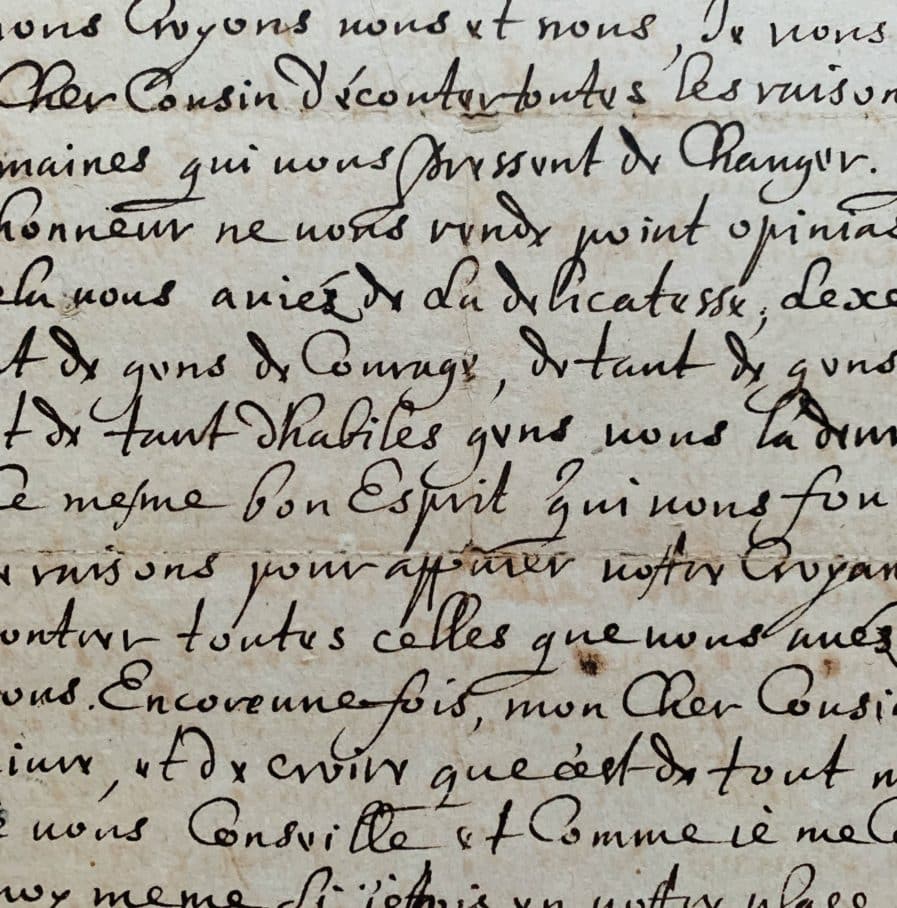 nons Croyons vous et nous, Je vous
Cher Cousin d'écouter toutes les raison
maines qui vous pressent de Changer.
honneur ne vous rende point opinias
ela vous aviéz de la delicatesse, Lexe
t de gens de Courage, de tant de gens
t de tant dhabiles gens vous la
Ce mesme bon Esprit qui vous fou
raisons pour appuier vostre Croyan
ontrer toutes celles que vous avéz
ons. Encore une fois, mon Cher Cousi
et de croire que c'est de tout m
vous Conseille et Comme ie me Co
moy meme Si i'estois en vostre place